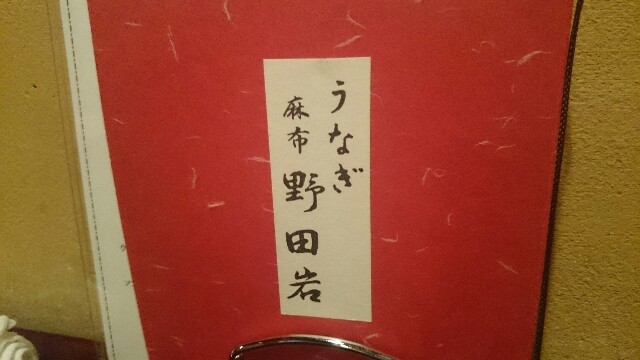 うなぎ
麻布
野田岩